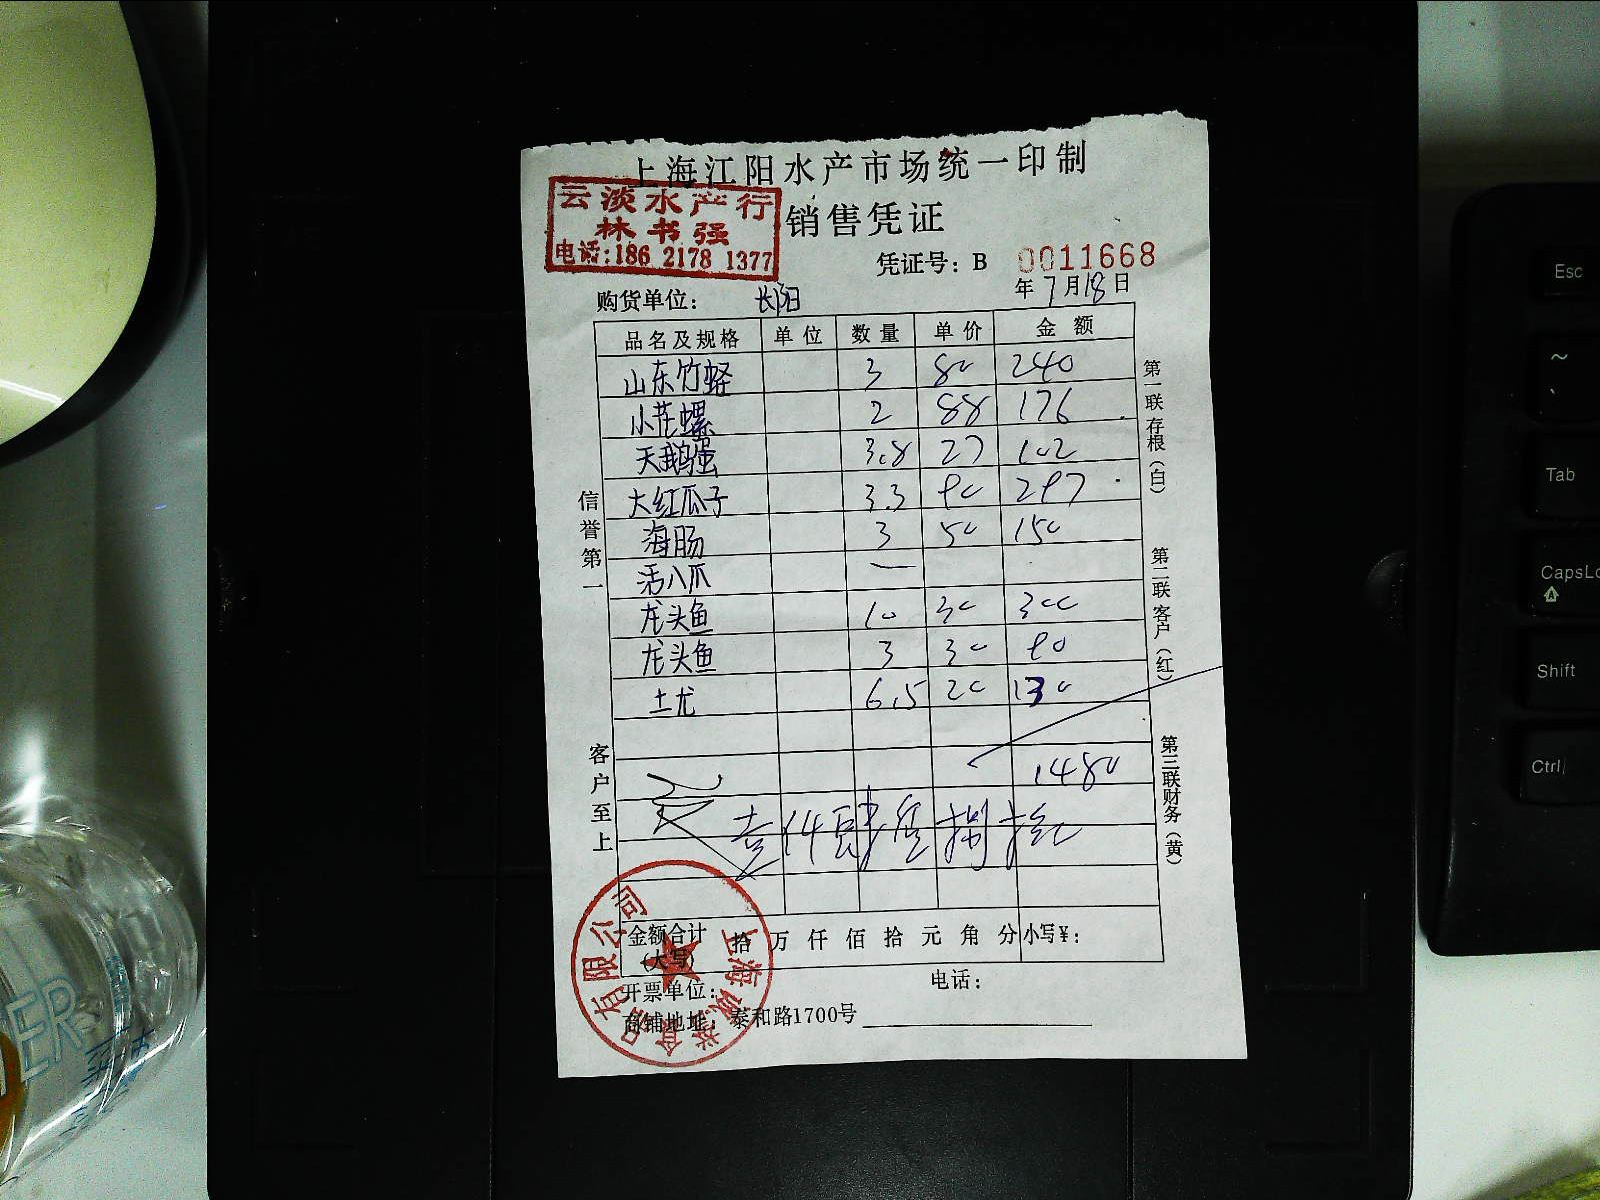 上海江阳水产市场统一印制
云淡水产行
林书强
电话:186 2178 1377
销售凭证
凭证号: B 0011668
年 7 月 18 日
购货单位: 长阳
品名及规格 单位 数量 单价 金额
山东竹蛏 3 80 240
小花螺 2 88 176
天鹅蛋 3.8 27 102
大红瓜子 3.3 90 297
海肠 3 50 150
活八爪 一
龙头鱼 10 30 300
龙头鱼 3 30 90
土尤 6.5 20 130
1480
壹仟肆佰捌拾
金额合计(大写) 拾 万 仟 佰 拾 元 角 分 小写¥:
开票单位: 电话:
商铺地址: 泰和路1700号
信誉第一
客户至上
第一联存根(白)
第二联客户(红)
第三联财务(黄)
Esc
~
`
Tab
CapsLo
Shift
Ctrl
ER